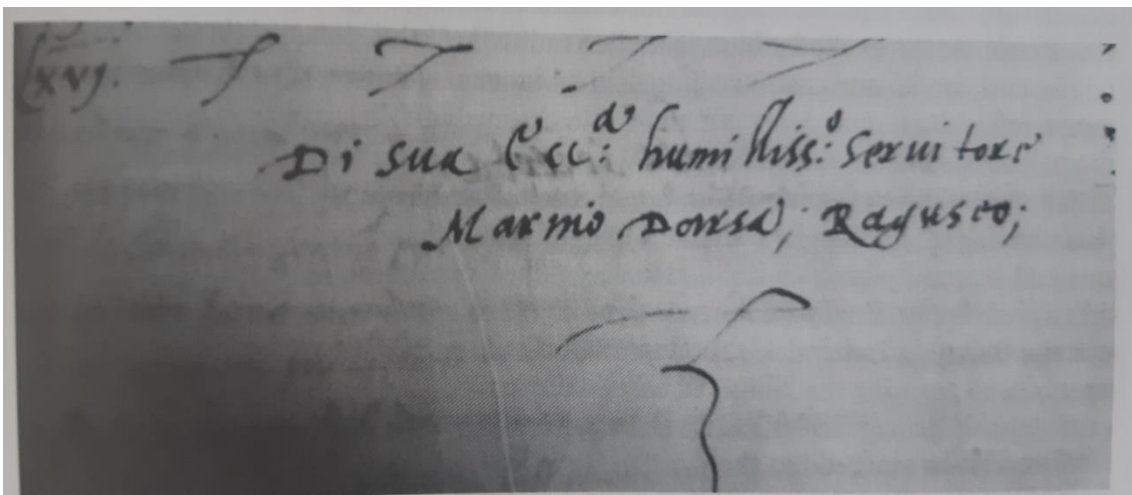 xvj.
Di sua Ecc:ᵃ humilliss:º seruitore
Marino Darsa; Raguseo;